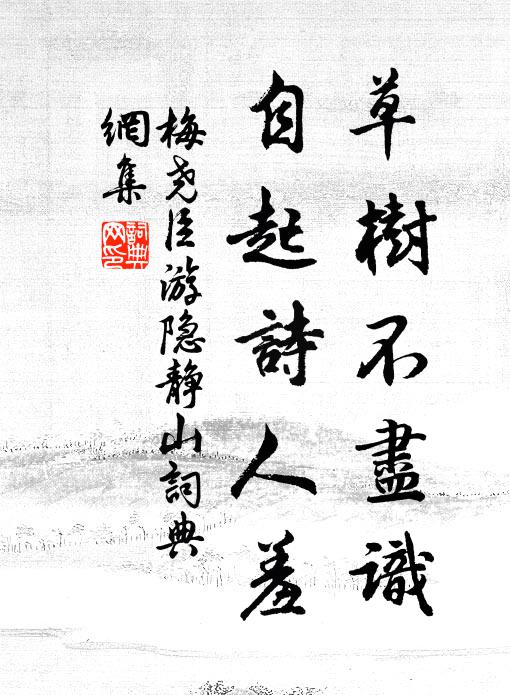 草樹不盡識
自起詩人羞
梅尧臣游隐静山詞典
網集
詞典
网印